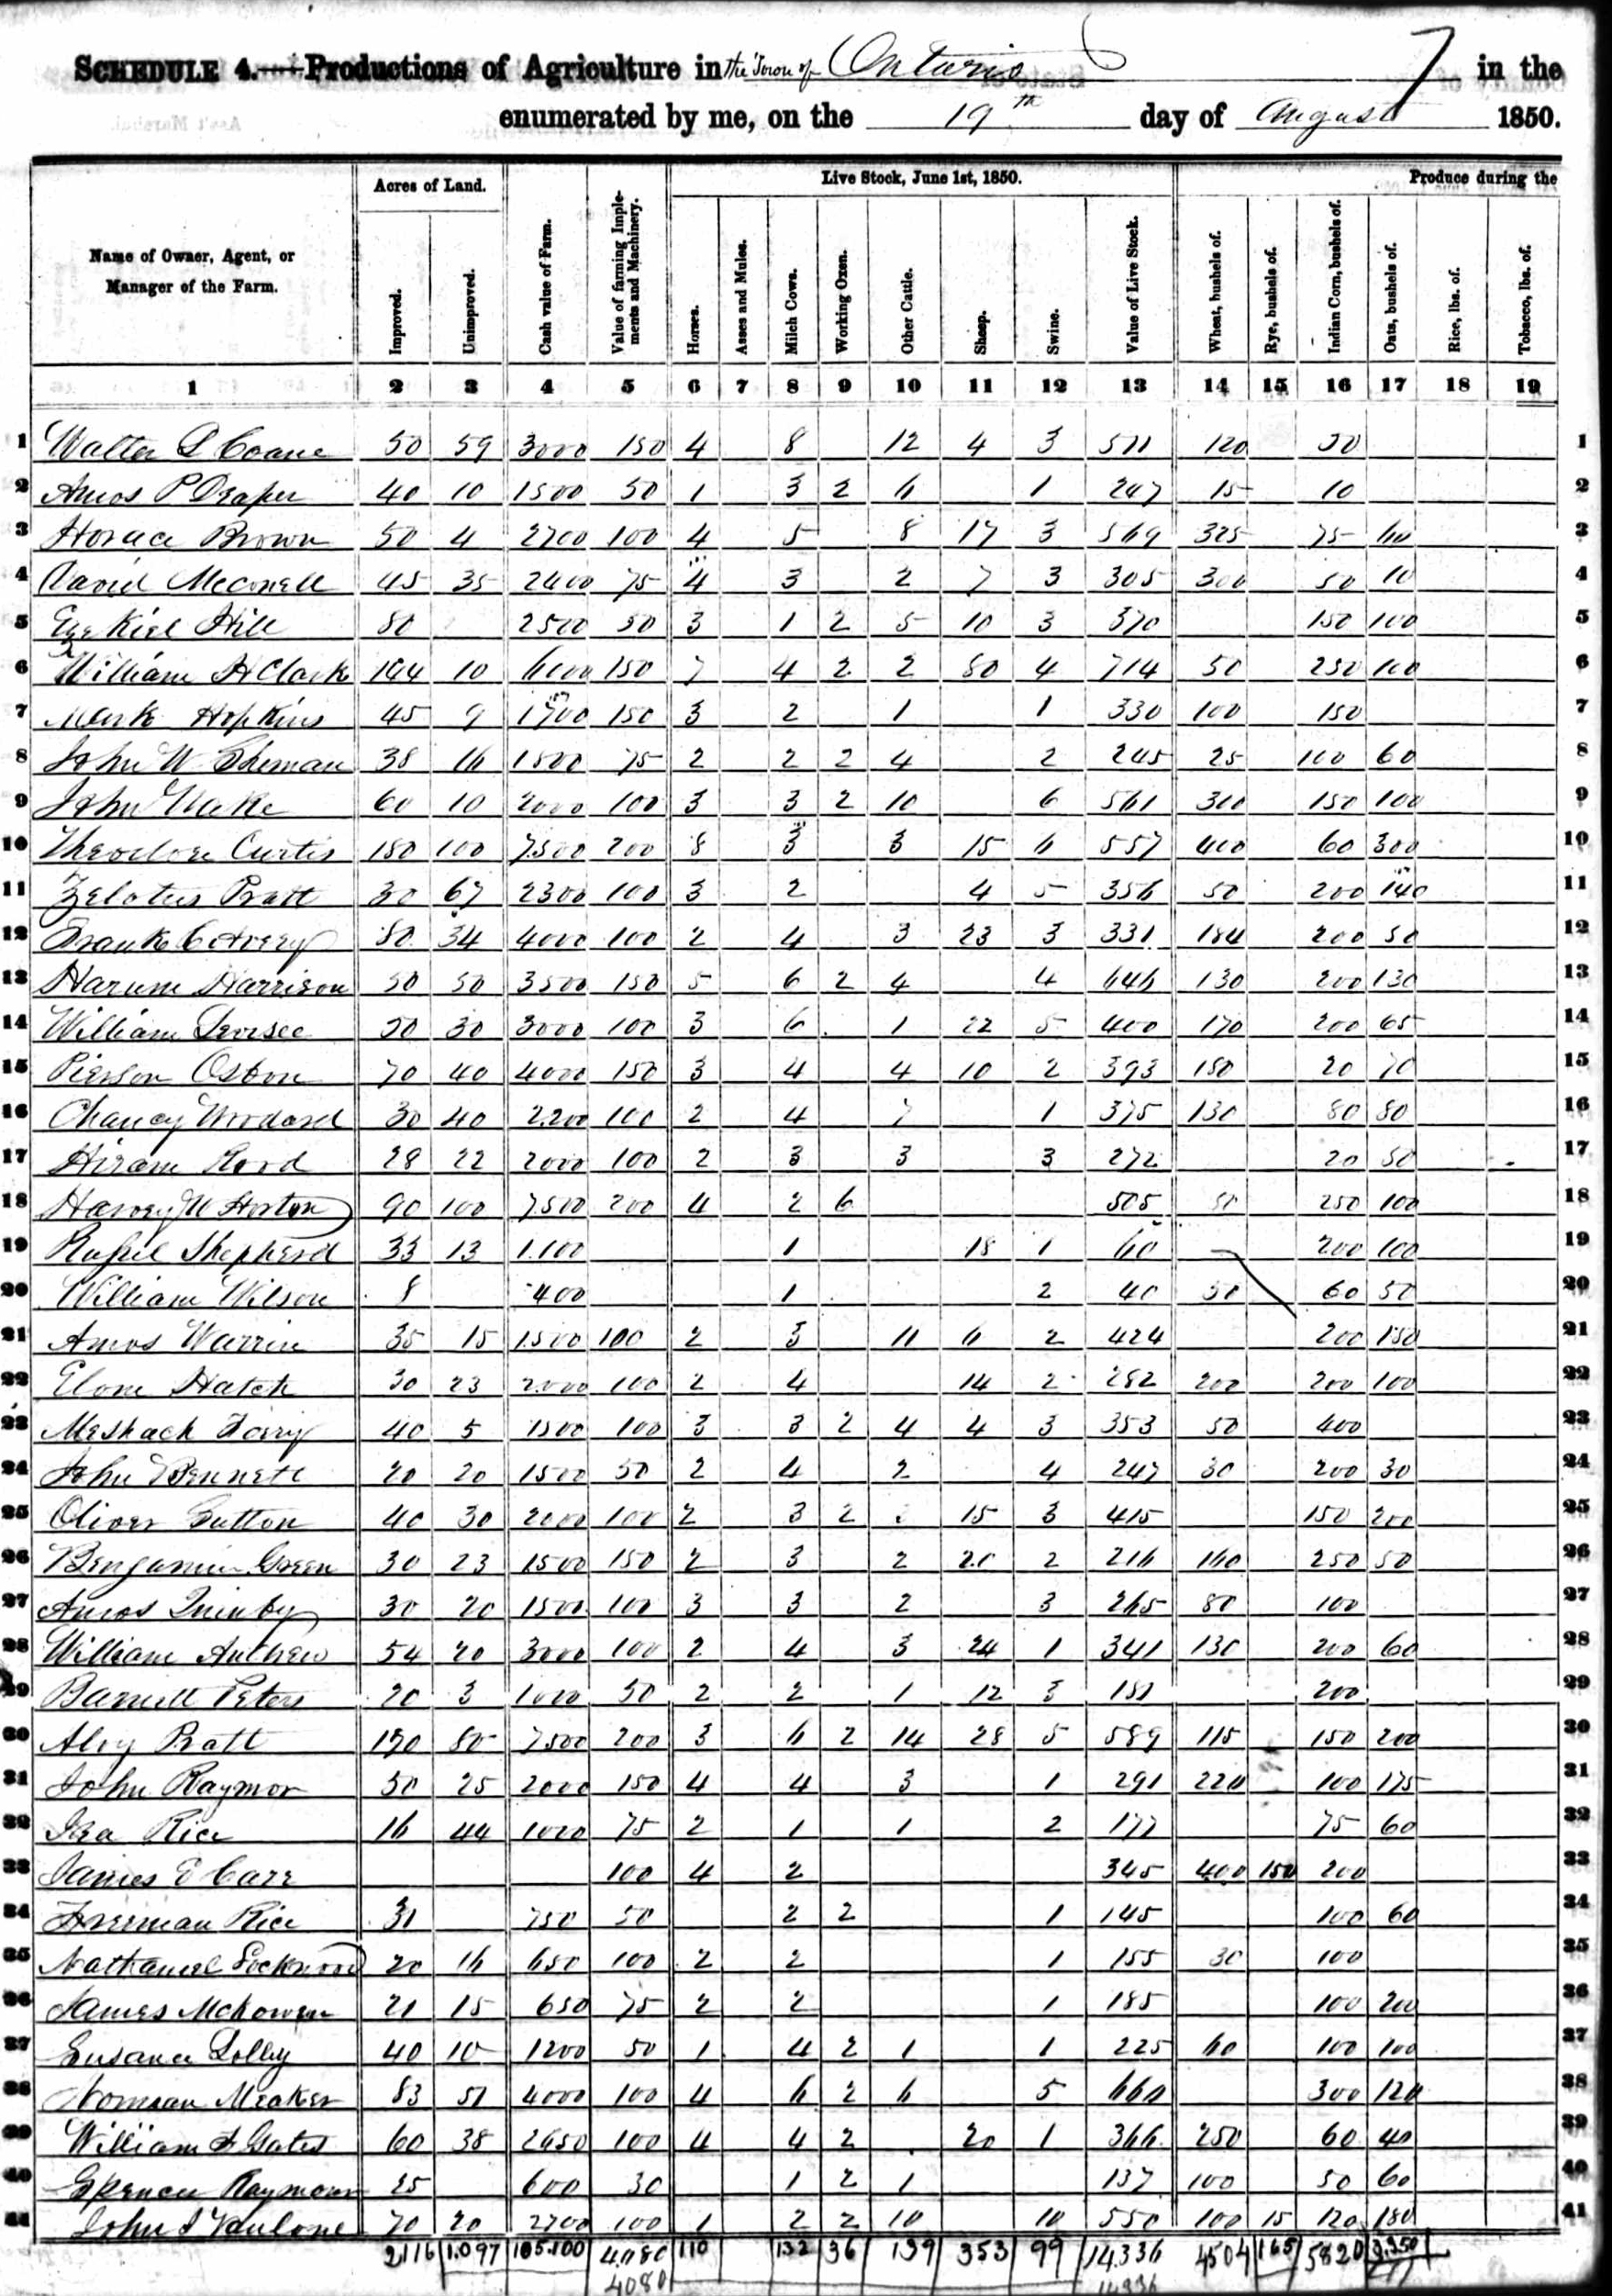 SCHEDULE 4.—Productions of Agriculture in the Town of Ontario 7 in the
enumerated by me, on the 19th day of August 1850.
Name of Owner, Agent, or Manager of the Farm. Acres of Land. Improved. Unimproved. Cash value of Farm. Value of farming Implements and Machinery. Live Stock, June 1st, 1850. Horses. Asses and Mules. Milch Cows. Working Oxen. Other Cattle. Sheep. Swine. Value of Live Stock. Produce during the Wheat, bushels of. Rye, bushels of. Indian Corn, bushels of. Oats, bushels of. Rice, lbs. of. Tobacco, lbs. of.
1 2 3 4 5 6 7 8 9 10 11 12 13 14 15 16 17 18 19
1 Walter 50 59 3000 150 4 8 12 4 3 511 120 50 1
2 Amos P Draper 40 10 1500 50 1 3 2 6 1 247 15 10 2
3 Horace Brown 50 4 2700 100 4 5 8 17 3 569 325 75 60 3
4 David Mcconell 45 35 2400 75 4 3 2 7 3 305 300 50 10 4
5 Ezekiel Hill 80 2500 50 3 1 2 5 10 3 370 150 100 5
6 William H Clark 144 10 6000 150 7 4 2 2 80 4 714 50 250 100 6
7 Mark Hopkins 45 9 1700 150 3 2 1 1 330 100 150 7
8 John W 38 16 1500 75 2 2 2 4 2 245 25 100 60 8
9 John 60 10 2000 100 3 3 2 10 6 561 300 150 100 9
10 Theodore Curtis 180 100 7500 200 8 3 3 15 6 557 400 60 300 10
11 Zelotus Pratt 30 67 2300 100 3 2 4 5 356 50 200 140 11
12 Frank C Avery 80 34 4000 100 2 4 3 23 3 331 184 200 50 12
13 Harum Harrison 50 50 3500 150 5 6 2 4 4 646 130 200 130 13
14 William 50 30 3000 100 3 6 1 22 5 400 170 200 65 14
15 Pierson Osbon 70 40 4000 150 3 4 4 10 2 393 180 20 70 15
16 Chancy Woodard 30 40 2200 100 2 4 7 1 375 130 80 80 16
17 Hiram Rood 28 22 2000 100 2 3 3 3 272 20 50 17
18 Harvey W Horton 90 100 7500 200 4 2 6 505 50 250 100 18
19 Shepherd 33 13 1.100 1 18 1 60 200 100 19
20 William Wilson 8 400 1 2 40 50 60 50 20
21 Amos Warrin 35 15 1500 100 2 3 11 6 2 424 200 150 21
22 Hatch 30 23 2000 100 2 4 14 2 282 200 200 100 22
23 Meshack 40 5 1500 100 3 3 2 4 4 3 353 50 400 23
24 John Bennett 20 20 1500 50 2 4 2 4 247 30 200 30 24
25 Oliver Sutton 40 30 2000 100 2 3 2 15 3 415 150 200 25
26 Benjamin Green 30 23 1500 150 2 3 2 20 2 216 160 250 50 26
27 Amos Quinby 30 20 1500 100 3 3 2 3 265 80 100 27
28 William Andrew 54 20 3000 100 2 4 3 24 1 341 130 200 60 28
29 Barnett Peters 20 3 1000 50 2 2 1 12 3 181 200 29
30 Alvy Pratt 120 80 7500 200 3 6 2 14 28 5 589 115 150 200 30
31 John Raymor 50 25 2000 150 4 4 3 1 291 220 100 175 31
32 Ira Rice 16 44 1000 75 2 1 1 2 177 75 60 32
33 James E Carr 100 4 2 345 400 150 200 33
34 Freeman Rice 31 750 50 2 2 1 145 100 60 34
35 Nathaniel Lockwood 20 16 650 100 2 2 1 155 30 100 35
36 James McKowen 21 15 650 75 2 2 1 185 100 200 36
37 40 10 1200 50 1 4 2 1 1 225 60 100 100 37
38 Norman Meaker 83 51 4000 100 4 6 2 6 5 660 300 120 38
39 William Gates 60 38 2650 100 4 4 2 20 1 366 250 60 40 39
40 Spencer Raymour 25 600 30 1 2 1 137 100 50 60 40
41 John 70 20 2700 100 1 2 2 10 10 550 100 15 120 180 41
2116 1.097 105.100 4,080 110 132 36 139 353 99 14,336 4504 165 5820 3.350
4080 14336